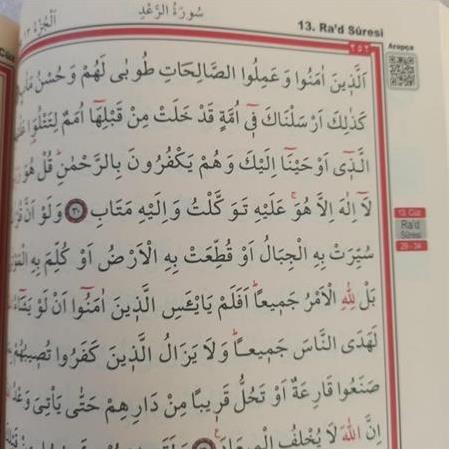 سُورَةُ الرَّعْدِ
اَلْجُزْءُ ١٣
13. Ra'd Sûresi
٢٥٢
Arapça
اَلَّذ۪ينَ اٰمَنُوا وَعَمِلُوا الصَّالِحَاتِ طُوبٰى لَهُمْ وَحُسْنُ
كَذٰلِكَ اَرْسَلْنَاكَ ف۪ٓي اُمَّةٍ قَدْ خَلَتْ مِنْ قَبْلِهَٓا اُمَمٌ لِتَتْلُوَ۬ا
الَّذ۪ٓي اَوْحَيْنَٓا اِلَيْكَ وَهُمْ يَكْفُرُونَ بِالرَّحْمٰنِۜ قُلْ هُوَ
لَٓا اِلٰهَ اِلَّا هُوَۚ عَلَيْهِ تَوَكَّلْتُ وَاِلَيْهِ مَتَابِ ﴿٣٠﴾ وَلَوْ اَنَّ
سُيِّرَتْ بِهِ الْجِبَالُ اَوْ قُطِّعَتْ بِهِ الْاَرْضُ اَوْ كُلِّمَ بِهِ
بَلْ لِلّٰهِ الْاَمْرُ جَم۪يعاًۜ اَفَلَمْ يَايْـَٔسِ الَّذ۪ينَ اٰمَنُٓوا اَنْ لَوْ
لَهَدَى النَّاسَ جَم۪يعاًۜ وَلَا يَزَالُ الَّذ۪ينَ كَفَرُوا تُص۪يبُهُمْ
صَنَعُوا قَارِعَةٌ اَوْ تَحُلُّ قَر۪يباً مِنْ دَارِهِمْ حَتّٰى يَأْتِيَ
اِنَّ اللّٰهَ لَا يُخْلِفُ الْم۪يعَادَ۟
13. Cüz
Ra'd
Sûresi
29 - 34